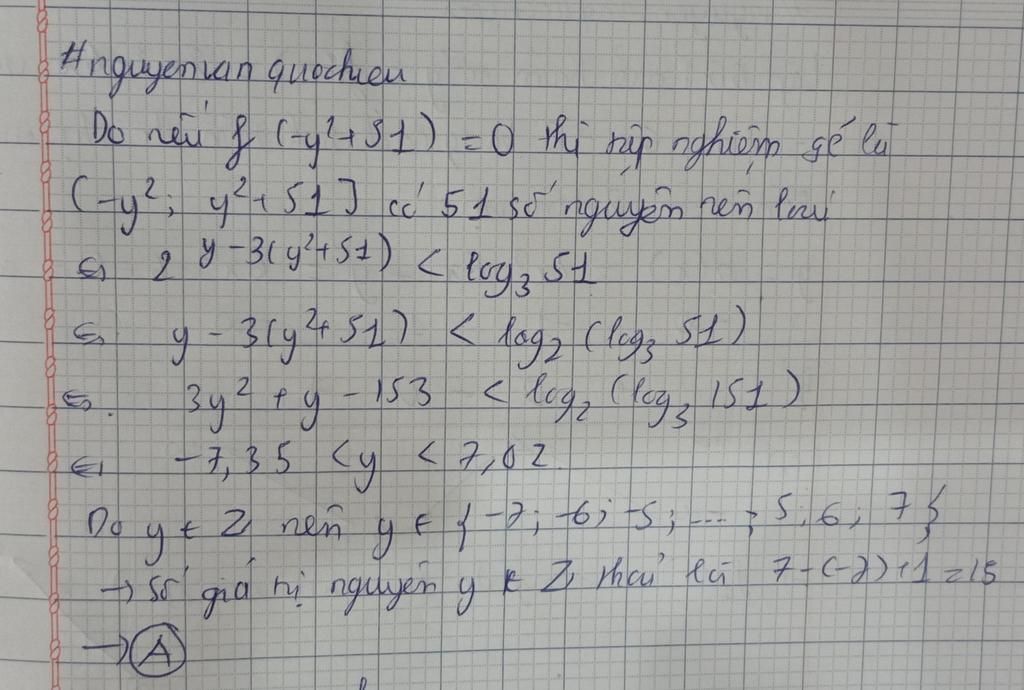 #nguyenvan quochieu
Do nếu f (-y²+51) = 0 thì tập nghiệm sẽ là
(-y²; y²+51] có 51 số nguyên nên loại
⇔ 2^{y-3(y²+51)} < log₃ 51
⇔ y - 3(y²+51) < log₂ (log₃ 51)
⇔ 3y² + y - 153 < log₂ (log₃ 151)
⇔ -7,35 < y < 7,02
Do y ∈ Z nên y ∈ {-7; -6; -5; ...; 5; 6; 7}
→ Số giá trị nguyên y ∈ Z thoả là 7-(-7)+1=15
→ A